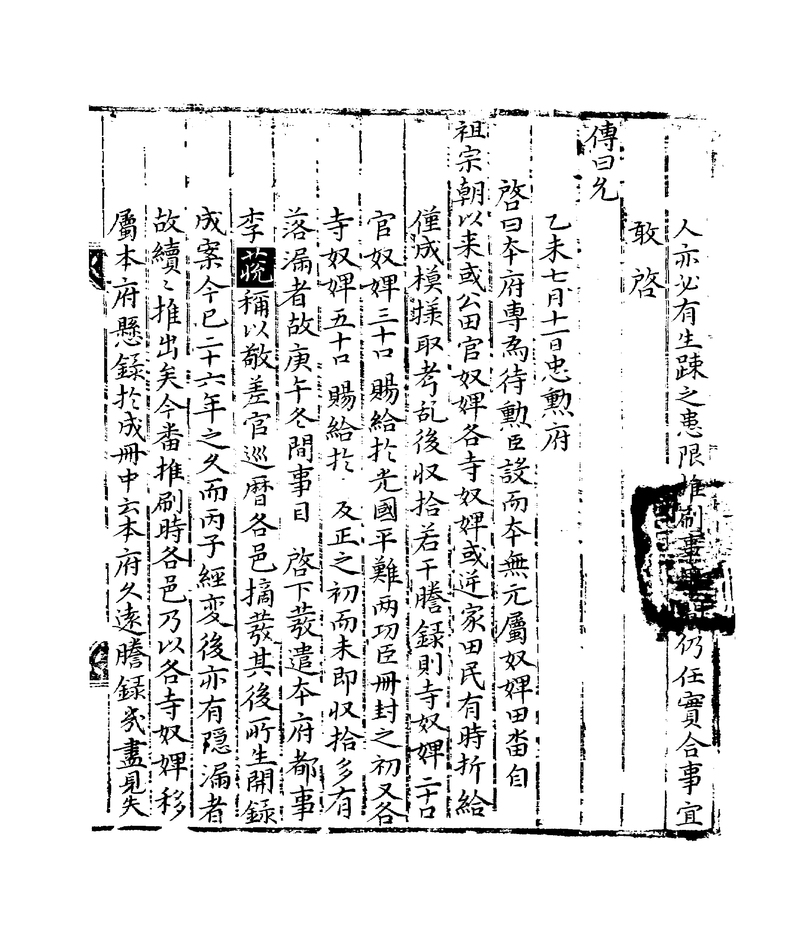 人亦必有生踈之患限推刷事 仍任實合事宜
敢啓
傳曰允
乙未七月十一日忠勳府
啓曰本府專爲待勳臣設而本無元屬奴婢田畓自
祖宗朝以来或公田官奴婢各寺奴婢或逆家田民有時折給
僅成模㨾取考乱後収拾若干謄録則寺奴婢二十口
官奴婢三十口賜給於光國平難两功臣冊封之初又各
寺奴婢五十口賜給於 反正之初而未即収拾多有
落漏者故庚午冬間事目 啓下發遣本府都事
李莌稱以敬差官巡曆各邑摘發其後所生開録
成案今已二十六年之久而丙子經変後亦有隠漏者
故續〻推出矣今番推刷時各邑乃以各寺奴婢移
属本府懸録於成冊中云本府久遠謄録㡬盡見失